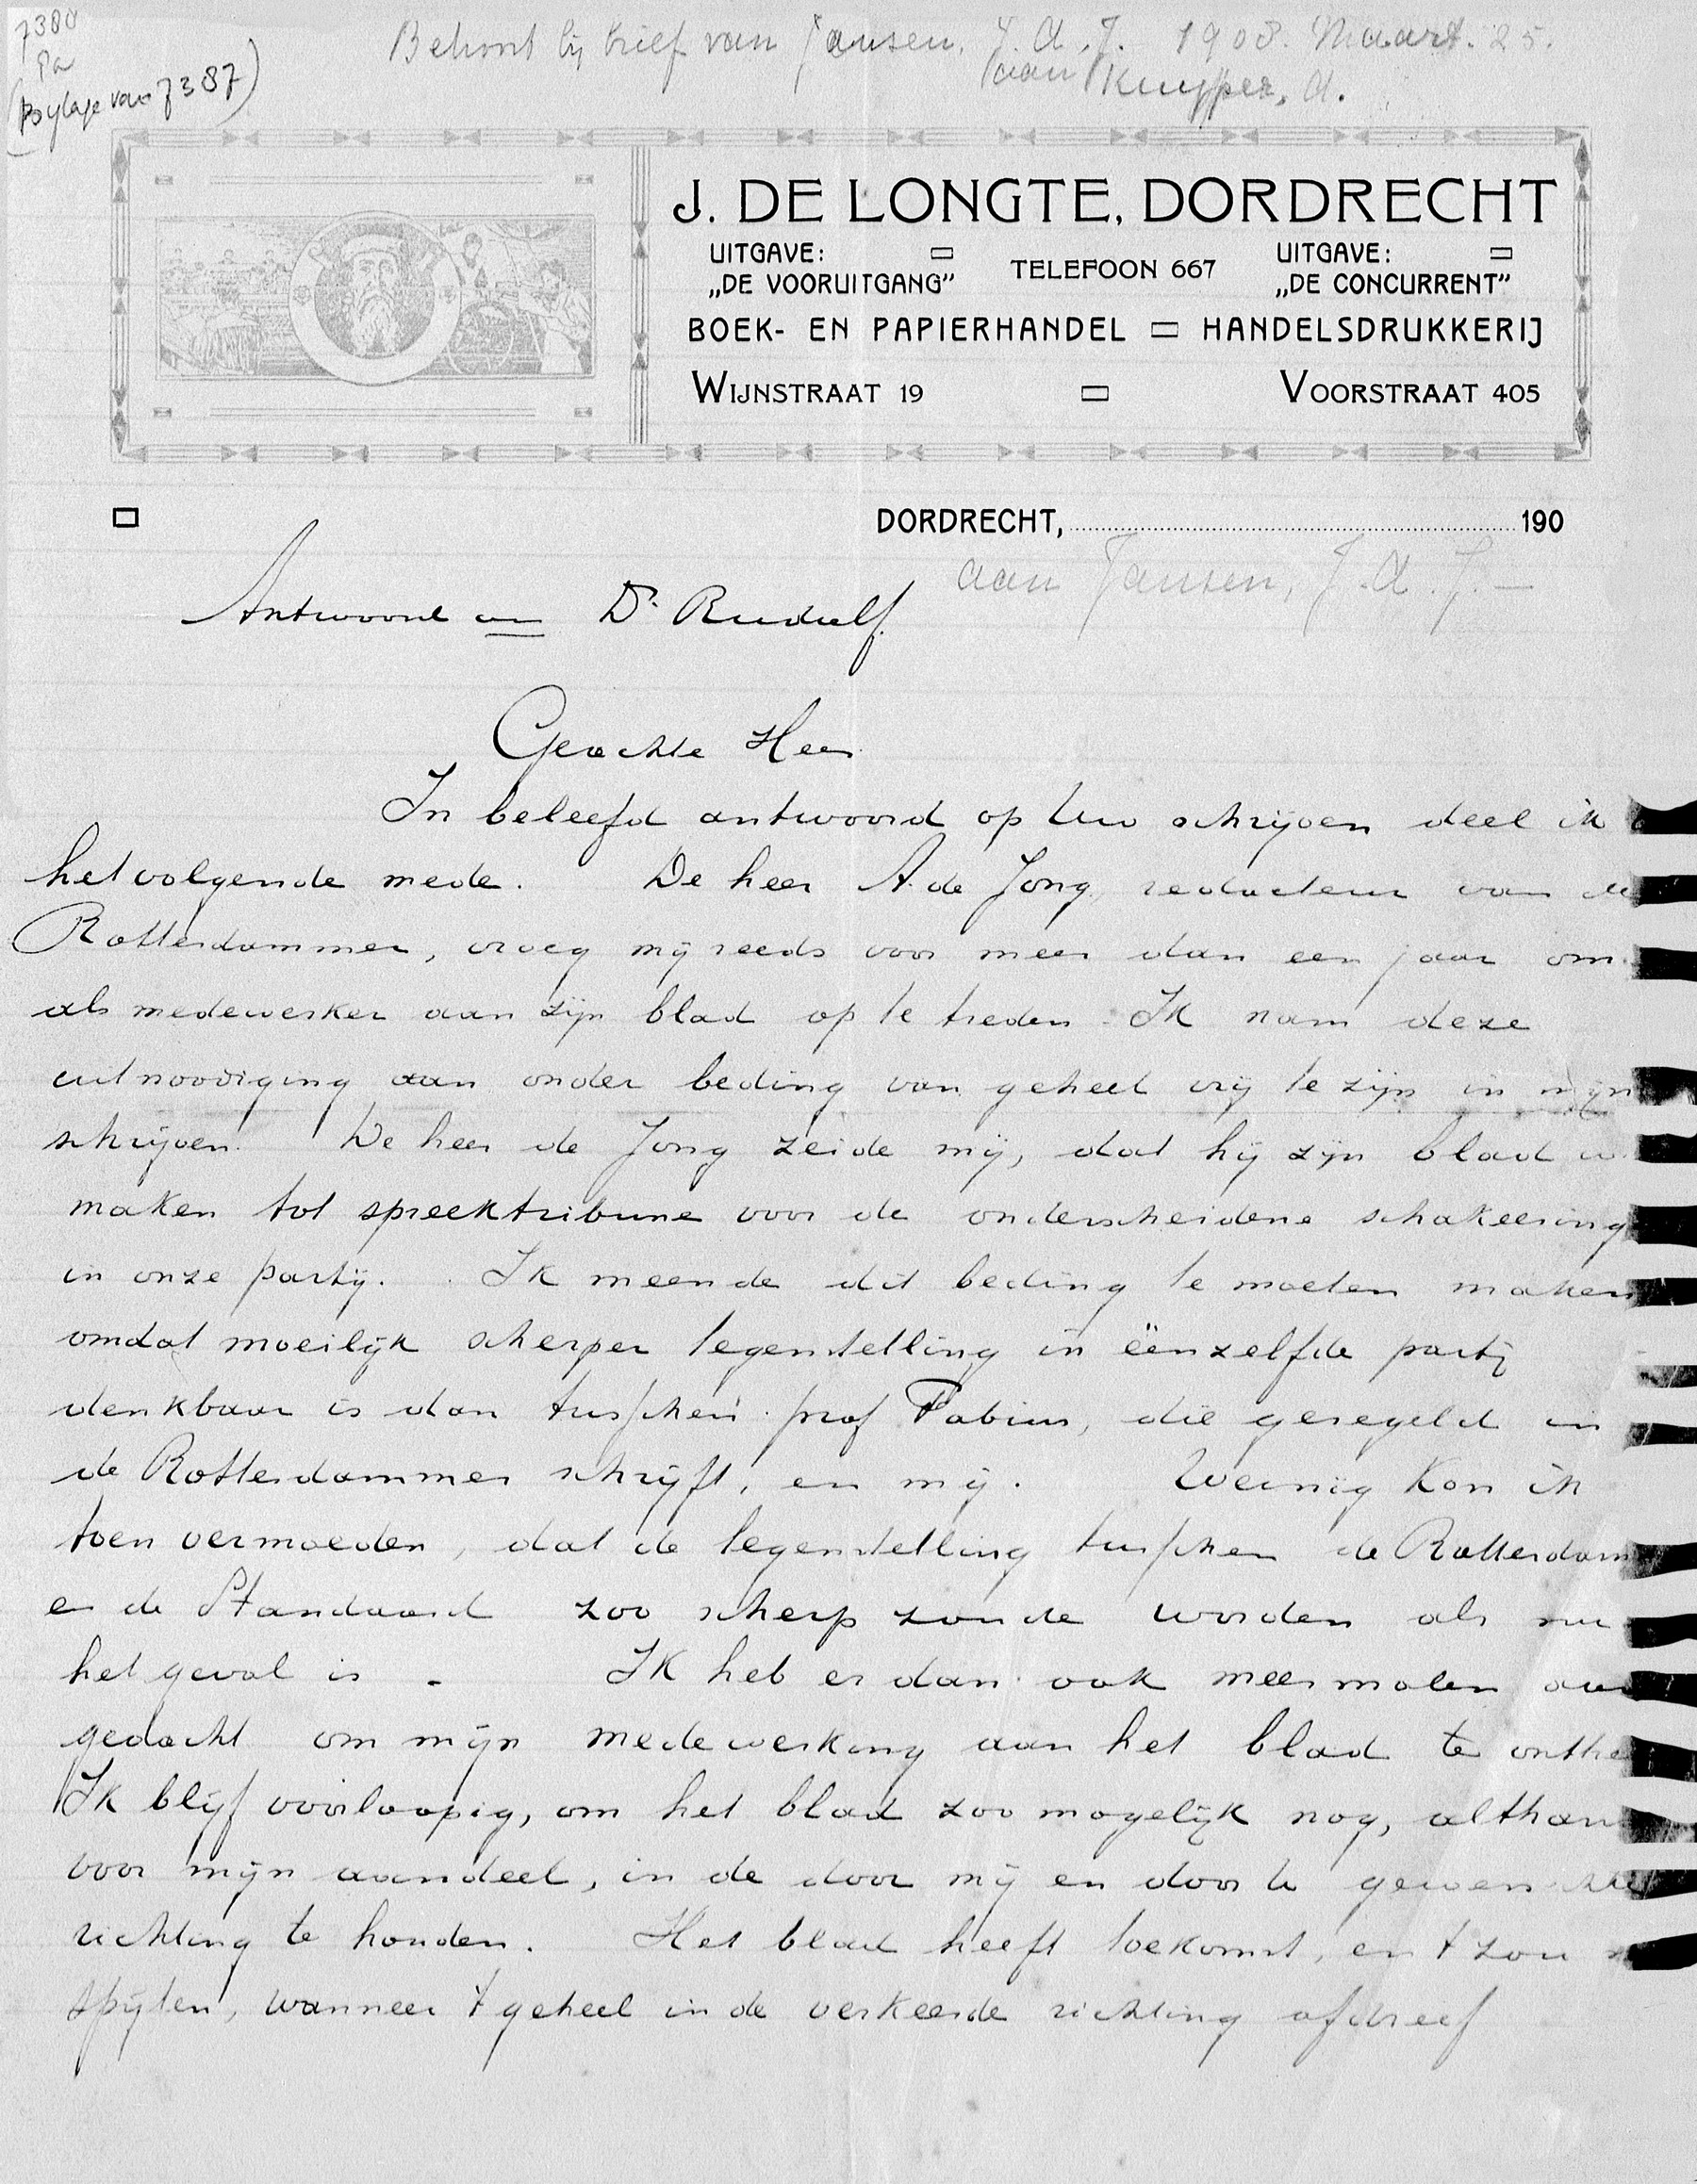 7380
Pa
(Bijlage van 7387)
Behoort bij brief van Jansen, J. A. J. 1908. Maart. 25.
aan Kuyper, A.
J. DE LONGTE, DORDRECHT
UITGAVE:
„DE VOORUITGANG”
TELEFOON 667
UITGAVE:
„DE CONCURRENT”
BOEK- EN PAPIERHANDEL HANDELSDRUKKERIJ
WIJNSTRAAT 19 VOORSTRAAT 405
DORDRECHT, 190
aan Jansen, J. A. J. —
Antwoord van Dr. Rudolf.
Geachte Heer
In beleefd antwoord op Uw schrijven deel ik
het volgende mede. De heer A. de Jong, redacteur van de
Rotterdammer, vroeg mij reeds voor meer dan een jaar om
als medewerker aan zijn blad op te treden. Ik nam deze
uitnoodiging aan onder beding van geheel vrij te zijn in mijn
schrijven. De heer de Jong zeide mij, dat hij zijn blad
maken tot spreektribune voor de onderscheidene schakeering
in onze partij. Ik meende dit beding te moeten maken
omdat moeilijk scherper tegenstelling in éénzelfde partij
denkbaar is dan tusschen prof Fabius, die geregeld in
de Rotterdammer schrijft, en mij. Weinig kon ik
toen vermoeden, dat de tegenstelling tusschen de Rotterdam
en de Standaard zoo scherp zoude worden als nu
het geval is. Ik heb er dan ook meermalen aan
gedacht om mijn medewerking aan het blad te onthe
Ik blijf voorloopig, om het blad zoo mogelijk nog, althans
voor mijn aandeel, in de door mij en door U gewenschte
richting te houden. Het blad heeft toekomst, en 't zou
spijten, wanneer 't geheel in de verkeerde richting afdreef